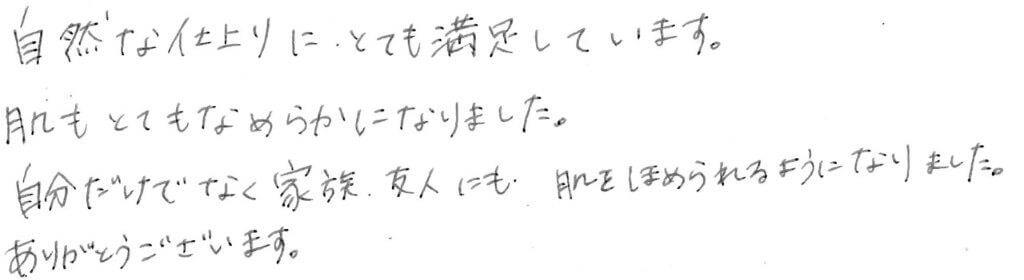 自然な仕上りに、とても満足しています。
肌もとてもなめらかになりました。
自分だけでなく家族、友人にも、肌をほめられるようになりました。
ありがとうございます。